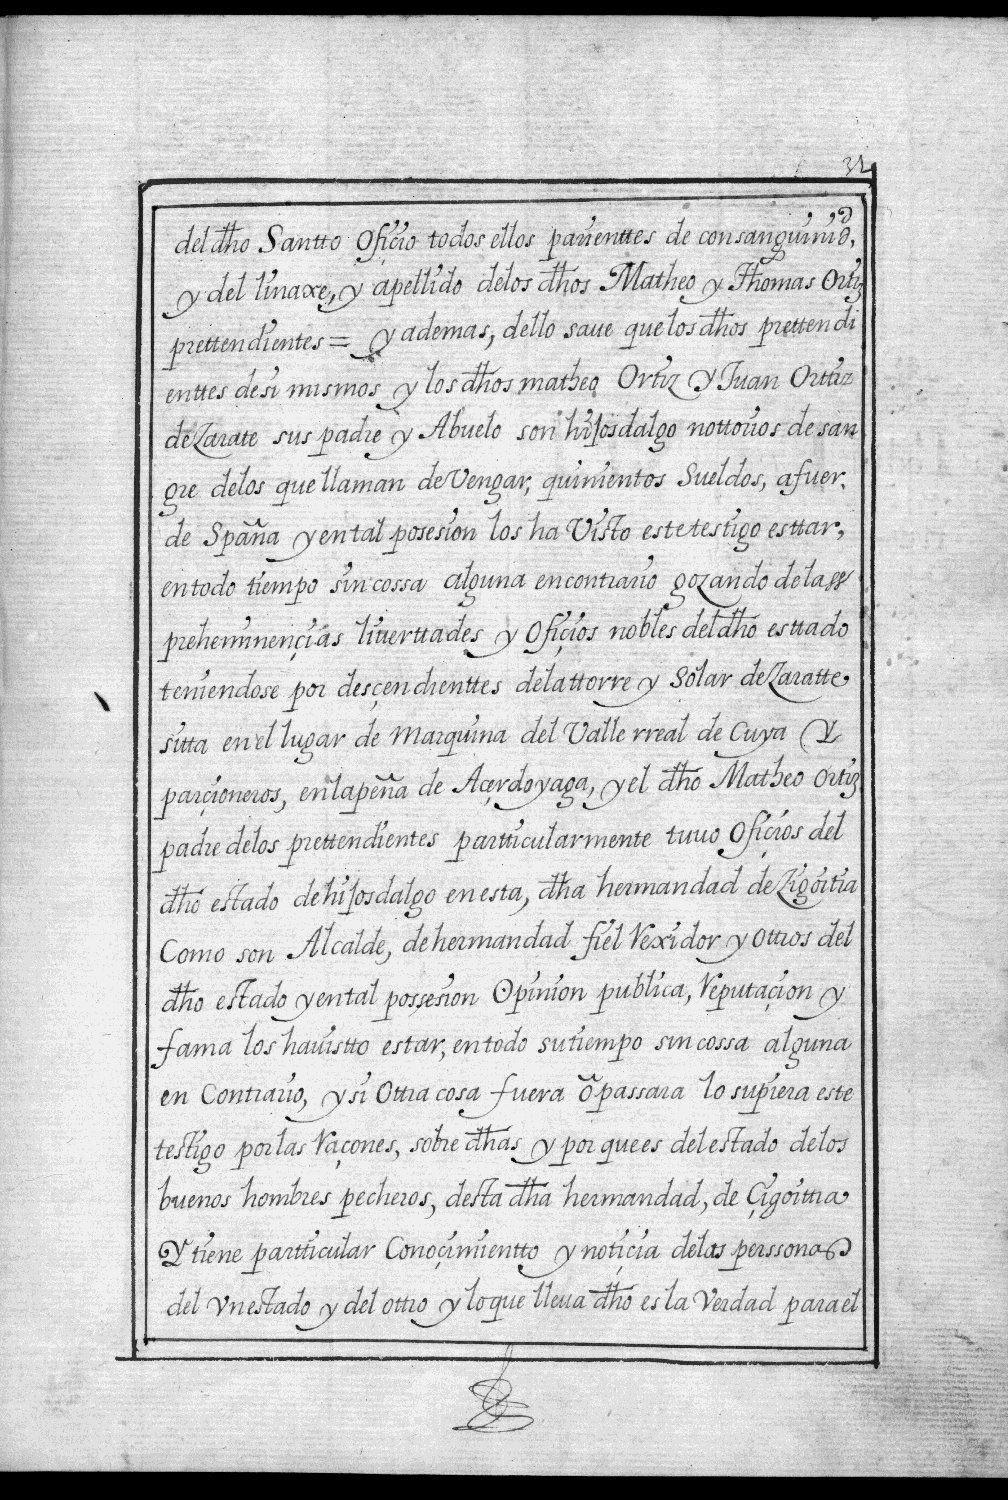 32
del dho Santto Ofiçio todos ellos parienttes de consanguinidd,
y del linaxe, y apellido delos dhos Matheo y Thomas Ortiz
prettendientes = y ademas, dello saue que los dhos prettendi
enttes de si mismos y los dhos matheo Ortiz Y Juan Orttiz
de Zarate sus padre y Abuelo son hijosdalgo nottorios de san
gre delos que llaman de Vengar, quinientos Sueldos, a fuer,
de Spaña y en tal posesion los ha Visto este testigo esttar,
en todo tiempo sin cossa alguna en contrario gozando de las
preheminençias liuerttades y Ofiçios nobles del dho esttado
teniendose por desçendienttes dela ttorre y Solar de Zaratte
sitta en el lugar de Marquina del Valle rreal de Cuya Y
parçioneros, en la peña de Açerdoyaga, y el dho Matheo Ortiz
padre delos prettendientes partticularmente tuuo Ofiçios del
dho estado de hijosdalgo en esta, dha hermandad de Zigoitia
Como son Alcalde, de hermandad fiel Rexidor y Ottros del
dho estado y en tal possesion Opinion publica, Reputaçion y
fama los ha visttto estar, en todo su tiempo sin cossa alguna
en Contrario, y si Ottra cosa fuera o passara lo supiera este
testigo por las Raçones, sobre dhas y por que es del estado delos
buenos hombres pecheros, desta dha hermandad, de Çigoittia
Y tiene partticular Conoçimientto y notiçia delas perssonas
del Vn estado y del ottro y lo que lleua dho es la Verdad para el